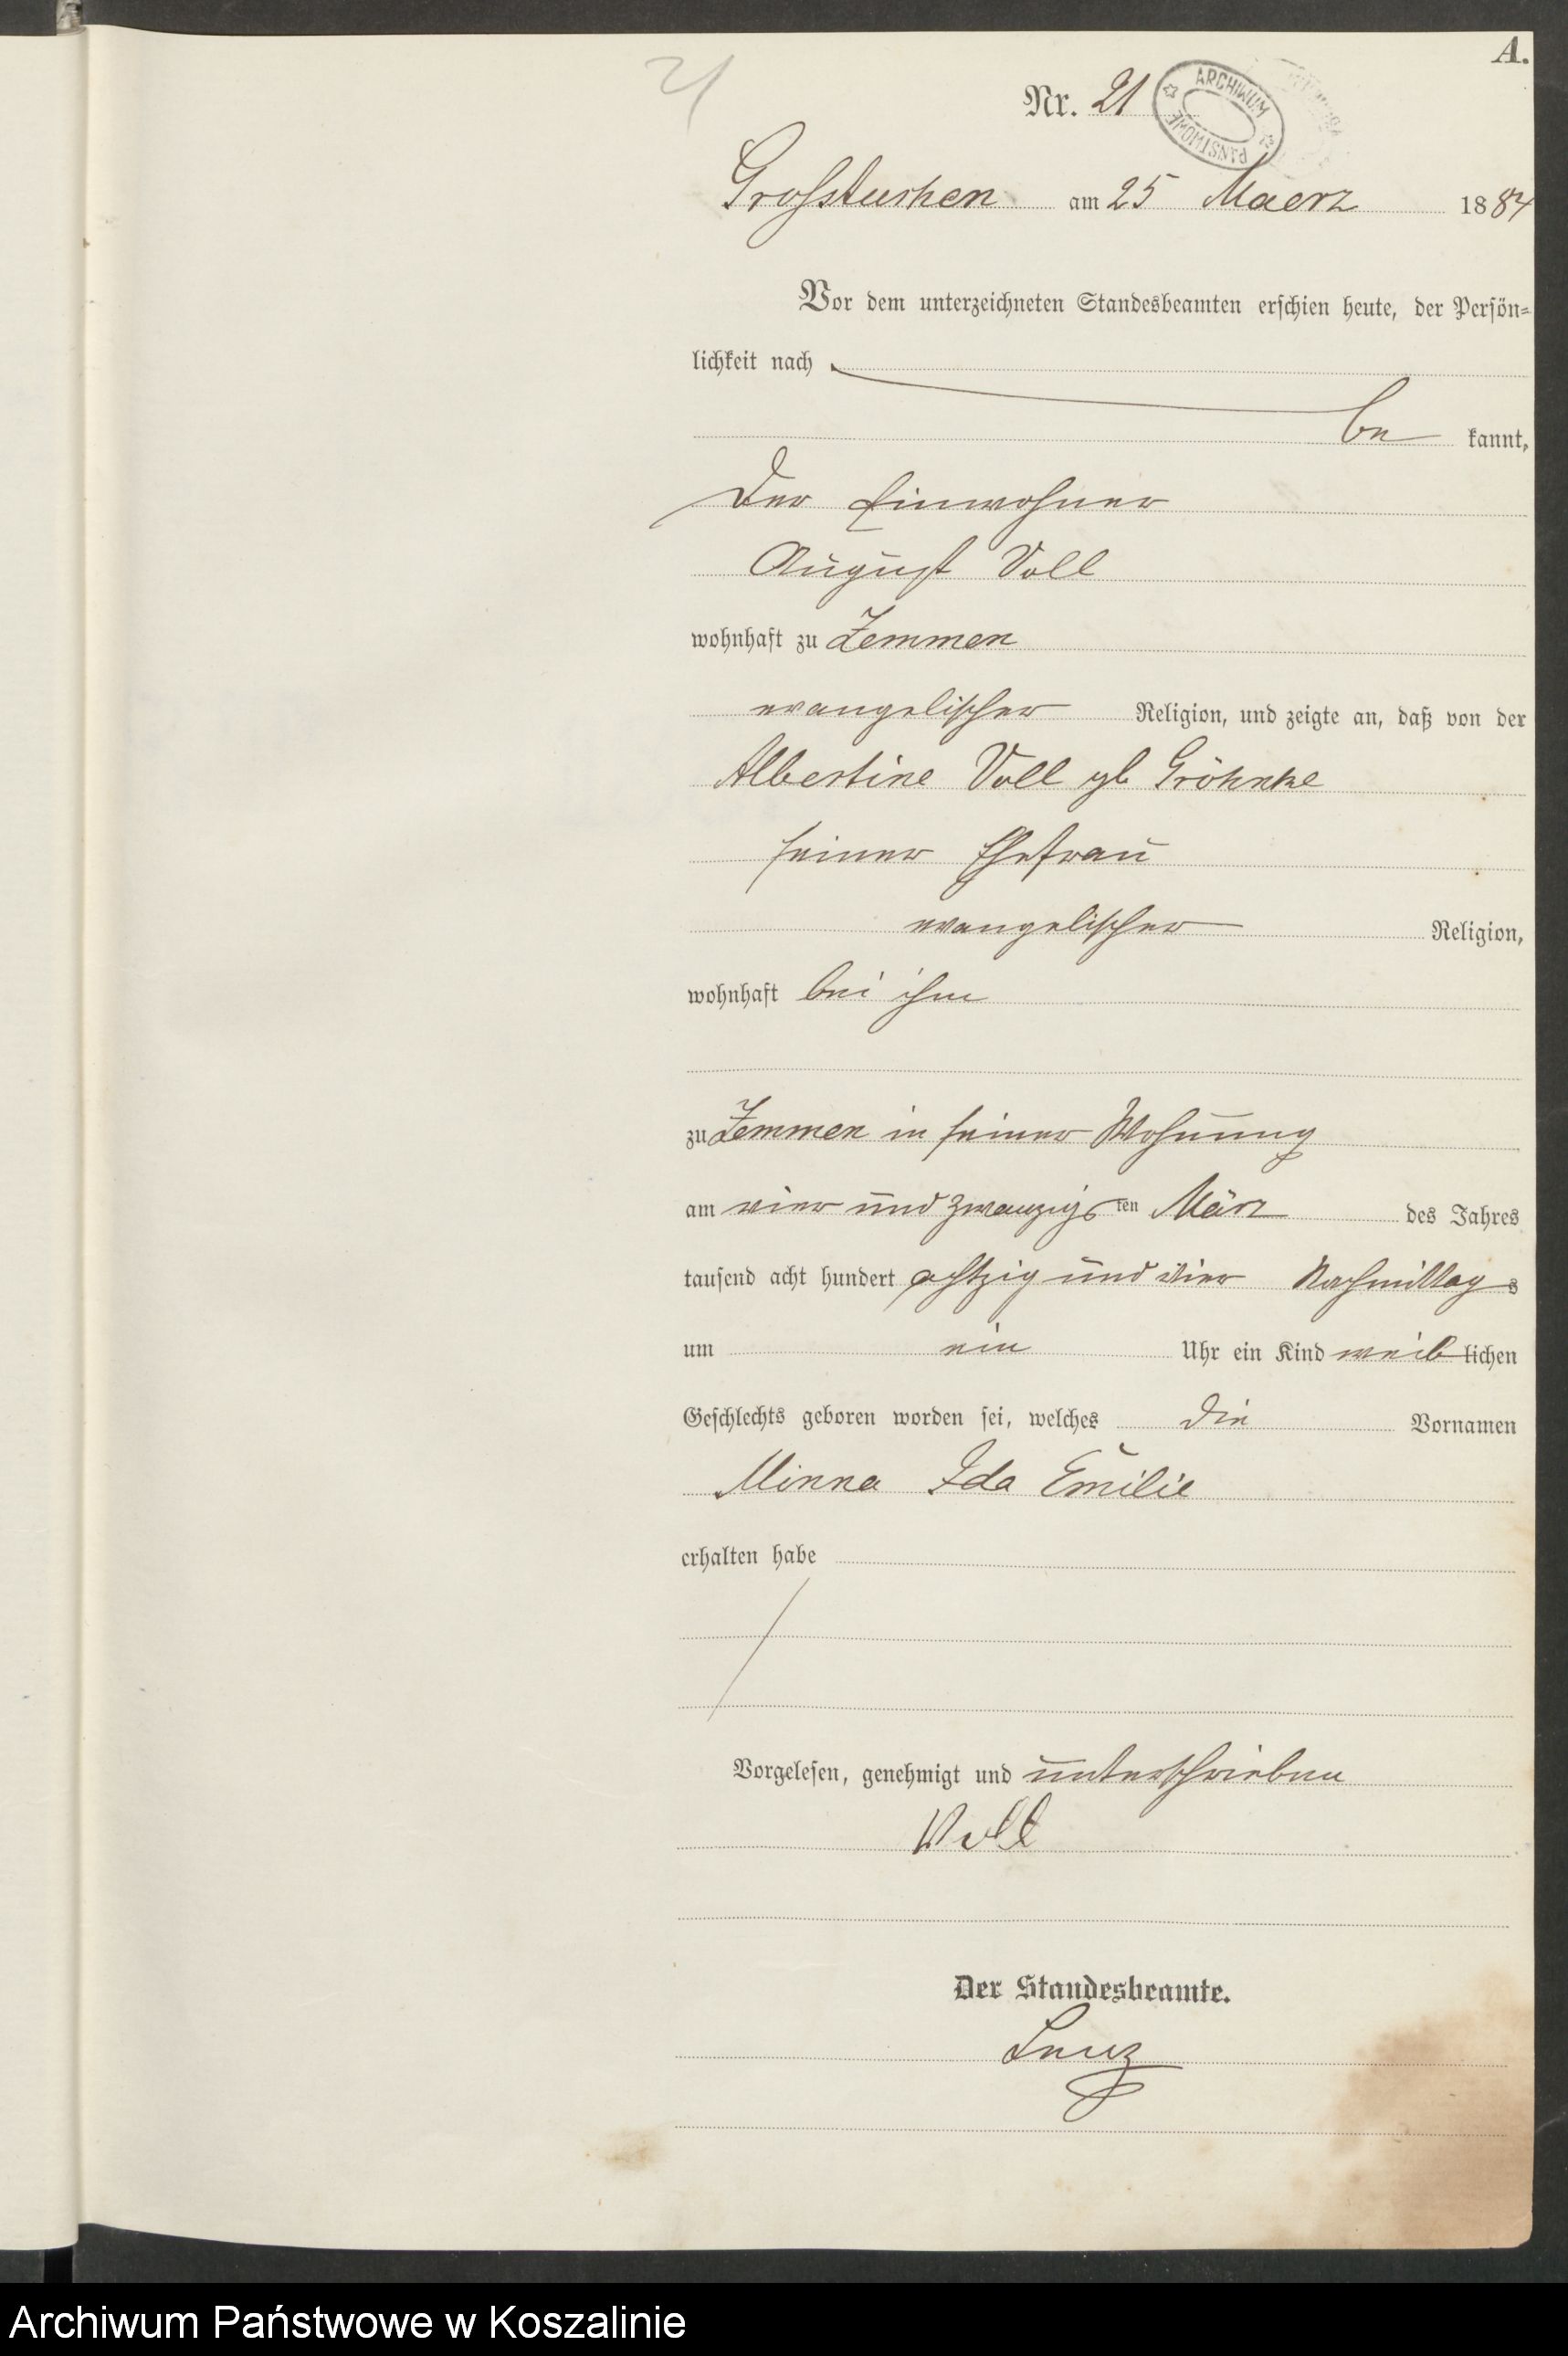 A.
21
Nr. 21
ARCHIWUM PAŃSTWOWE
Grosstuchen am 25 Maerz 1884
Vor dem unterzeichneten Standesbeamten erschien heute, der Persön-
lichkeit nach
be kannt,
Der Einwohner
August Voll
wohnhaft zu Zemmen
evangelischer Religion, und zeigte an, daß von der
Albertine Voll gb Gröhnke
seiner Ehefrau
evangelischer Religion,
wohnhaft bei ihm
zu Zemmen in seiner Wohnung
am vier und zwanzigsten März des Jahres
tausend acht hundert achtzig und vier Nachmittags
um ein Uhr ein Kind weiblichen
Geschlechts geboren worden sei, welches die Vornamen
Minna Ida Emilie
erhalten habe
Vorgelesen, genehmigt und unterschrieben
Voll
Der Standesbeamte.
Lenz
Archiwum Państwowe w Koszalinie